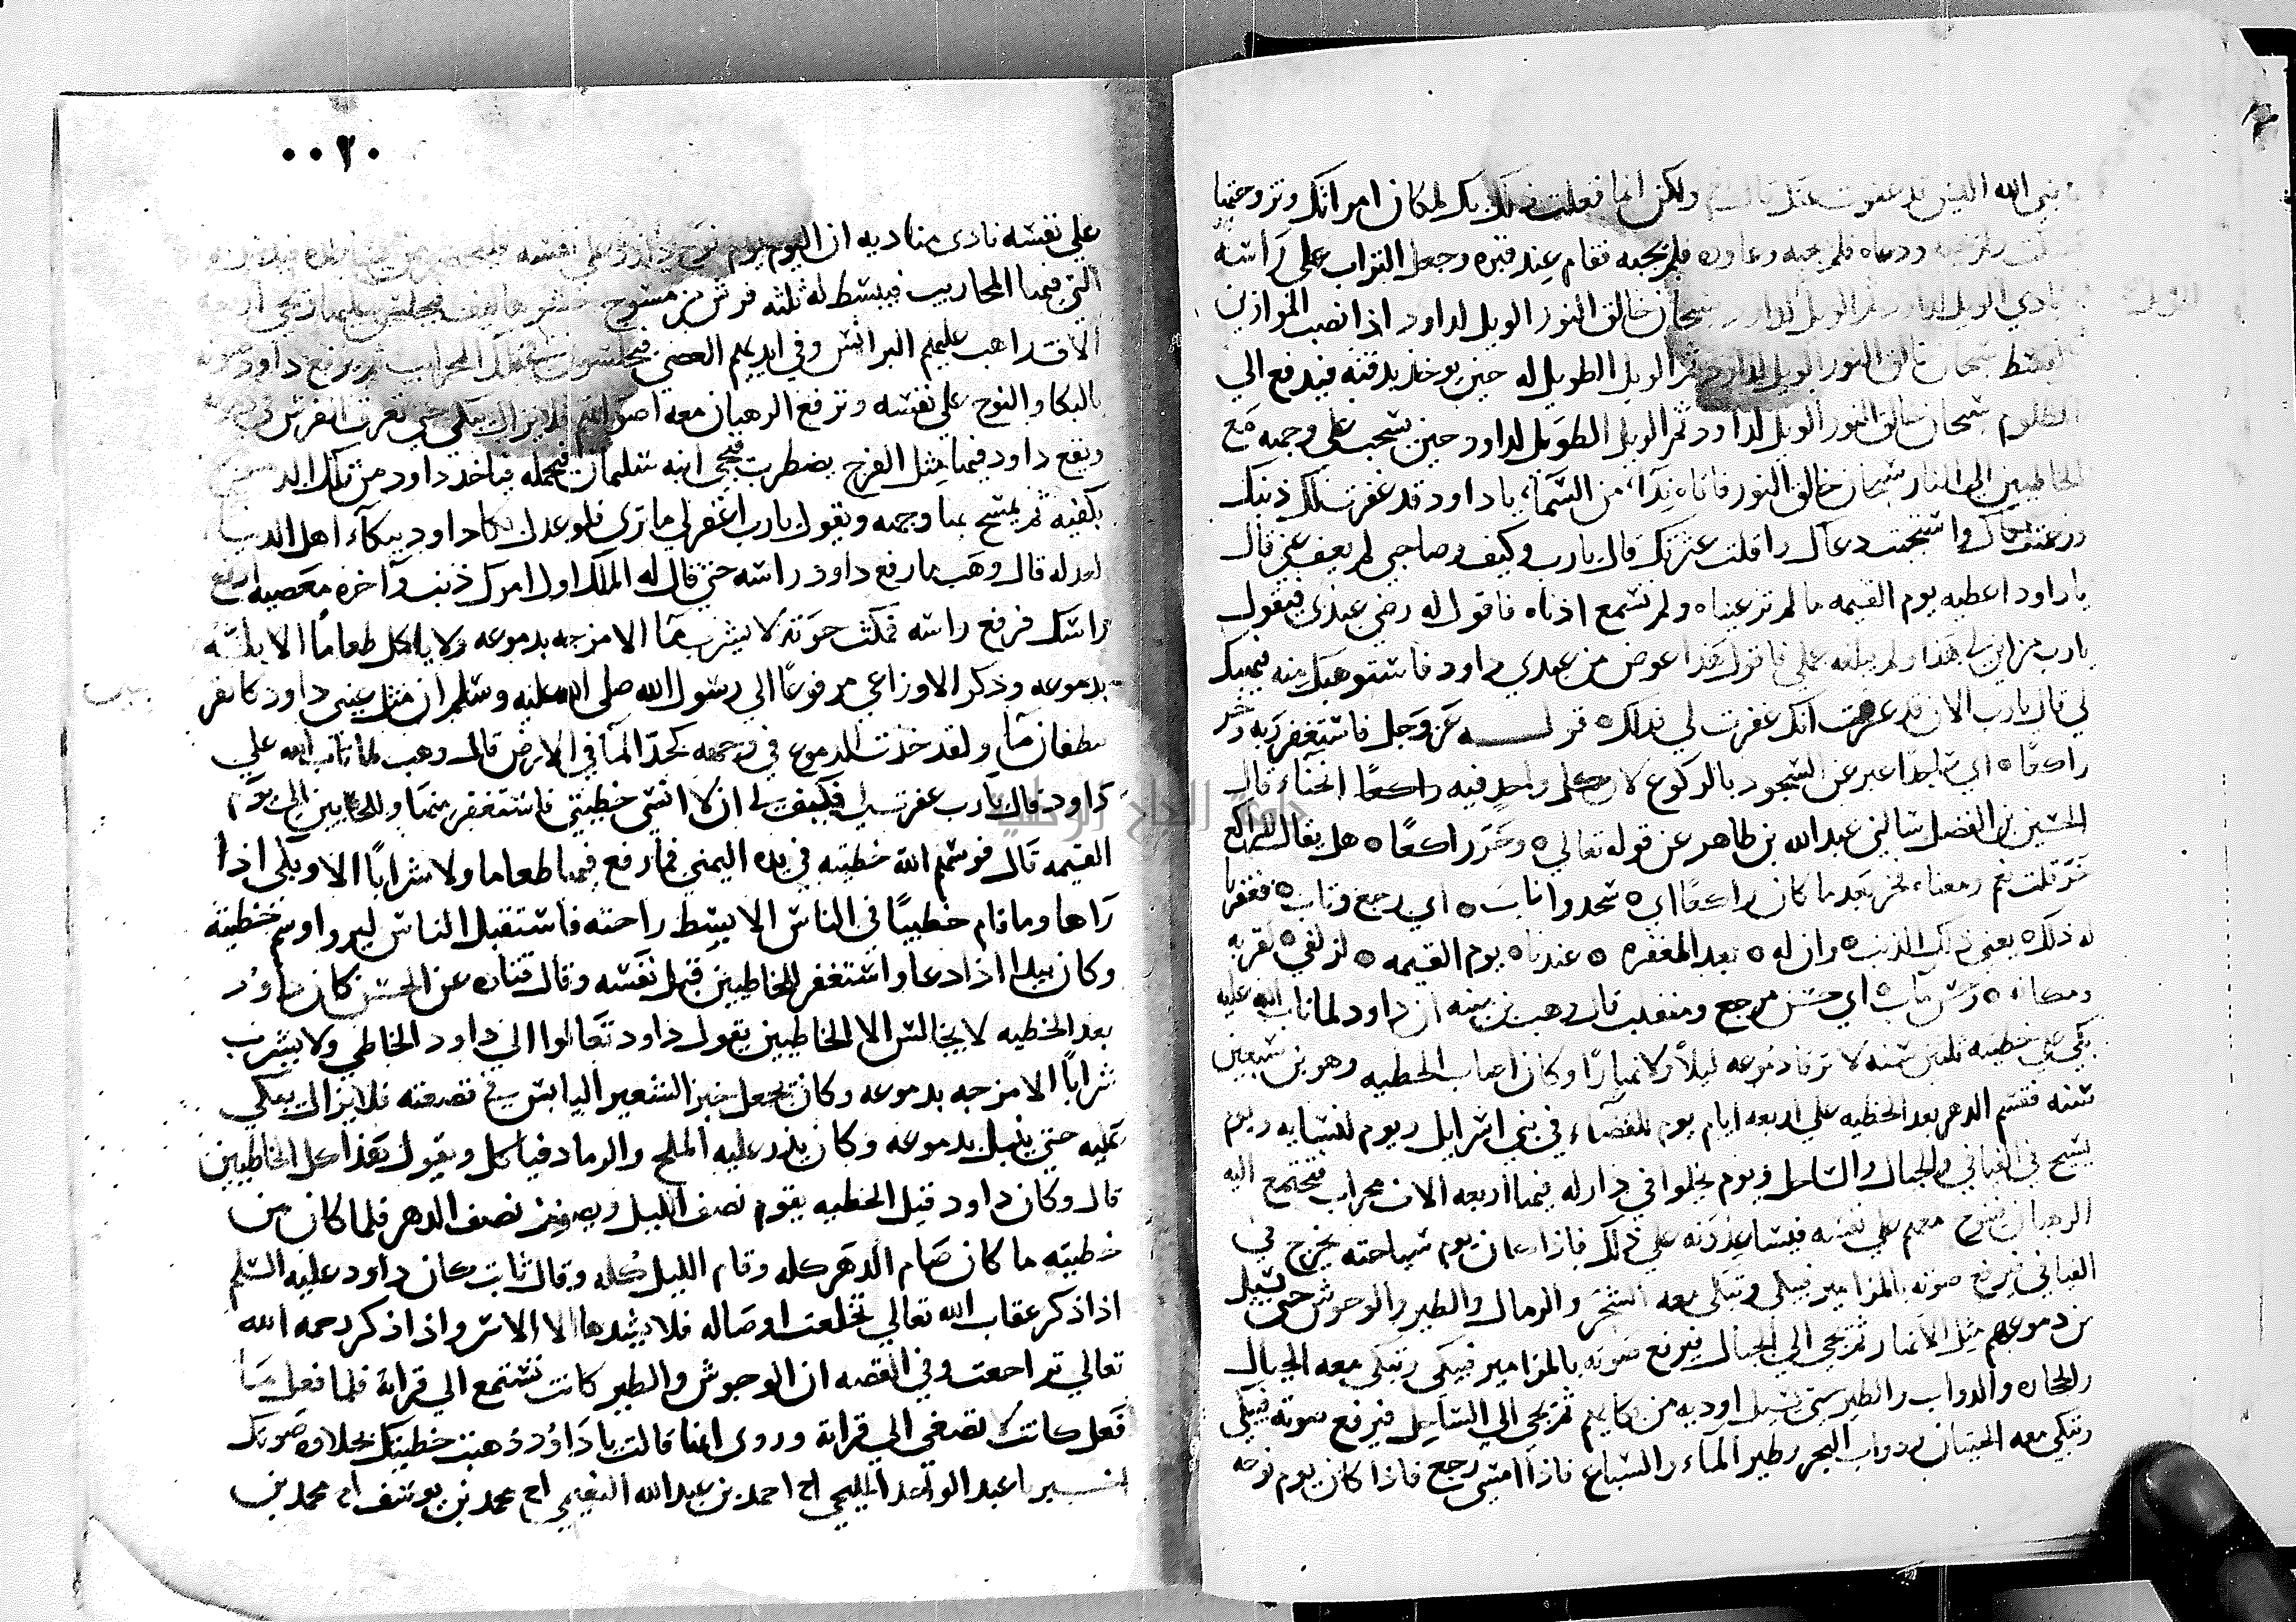 نبي الله اليس قد عفوت عنك قال نعم ولكن انما فعلت ذلك بك لمكان امراتك وتزوجتها
فلم يجبه ودعاه فلم يجبه وعاوده فلم يجبه فقام عند قبره وجعل التراب على راسه
نادي الويل لداود ثم الويل لداود سبحان خالق النور الويل لداود اذا نصب الموازين
بالقسط سبحان خالق النور الويل لداود ثم الويل الطويل له حين يوخذ بذقنه فيدفع الي
المظلوم سبحان خالق النور الويل لداود ثم الويل الطويل لداود حين يسحب علي وجهه مع
الخاطيين الى النار سبحان خالق النور فاتاه نداء من السماء يا داود قد غفرت لك ذنبك
ورحمت بكاك واستجبت دعاك واقلت عثرتك قال يارب وكيف وصاحبي لم يعف عني قال
يا داود اعطيه يوم القيمه ما لم تر عيناه ولم تسمع اذناه فاقول له رضي عبدي فيقول
يارب من اين لي هذا ولم يبلغه عملي فاقول هذا عوض من عبدي داود فاستوهبك منه فيهبك
لي قال يارب الان قد عرفت انك غفرت لي فذلك قوله عز وجل فاستغفر ربه وخر
راكعا اي ساجدا عبر عن السجود بالركوع لان كل واحد فيه انحناء قال
الحسين بن الفضل سالني عبد الله بن طاهر عن قوله تعالي وخر راكعا هل يقال للراكع
خر قلت نعم ومعناه فخر بعد ما كان راكعا اي سجد واناب اي رجع وتاب فغفرنا
له ذلك يعني ذلك الذنب وان له بعد المغفره عندنا يوم القيمه لزلفي لقربه
ومكانه وحسن مآب اي حسن مرجع ومنقلب قال وهب بن منبه ان داود لما تاب الله عليه
بكى علي خطيته ثلثين سنه لا ترقا دموعه ليلا ولا نهارا وكان اصاب الخطيه وهو بن سبعين
سنه فقسم الدهر بعد الخطيه علي اربعه ايام يوم للقضاء في بني اسرايل ويوم لنسايه ويوم
يسيح في الفيافي والجبال والساحل ويوم يخلوا في دار له فيها اربعه الاف محراب فيجتمع اليه
الرهبان فينوح معهم علي نفسه فيساعدونه علي ذلك فاذا كان يوم سياحته يخرج في
الفيافي فيرفع صوته بالمزامير فيبكي وتبكي معه الشجر والرمال والطير والوحوش حتى تسيل
من دموعهم مثل الانهار ثم يجي الى الجبال فيرفع صوته بالمزامير فيبكى وتبكى معه الجبال
والحجاره والدواب والطير حتى تسيل اوديه من بكايهم ثم يجي الي الساحل فيرفع صوته فيبكي
وتبكي معه الحيتان ودواب البحر وطير الماء والسباع فاذا امسى رجع فاذا كان يوم نوحه
٠٠٢٠
علي نفسه نادى مناديه ان اليوم يوم نوح داود علي نفسه فليحضر من يساعده
التي فيها المحاريب فيبسط له ثلثه فرش من مسوح حشوها ليف فيجلس عليها ويجي اربعة
الاف راهب عليهم البرانس وفي ايديهم العصي فيجلسون في تلك المحاريب ثم يرفع داود صوته
بالبكا والنوح علي نفسه وترفع الرهبان معه اصواتهم فلا يزال يبكي حتى تغرق الفرش
ويقع داود فيها مثل الفرخ يضطرب فيجي ابنه سليمان فيحمله فياخذ داود من تلك الدموع
بكفيه ثم يمسح بها وجهه ويقول يارب اغفر لي ما ترى فلو عدل بكا داود ببكآء اهل الدنيا
لعدله قال وهب ما رفع داود راسه حتى قال له الملك اول امرك ذنب وآخره معصيه ارفع
راسك فرفع راسه فمكث حوته لا يشرب مآ الا مزجه بدموعه ولا ياكل طعاما الا بله
بدموعه وذكر الاوزاعي مرفوعا الي رسول الله صلى الله عليه وسلم ان مثل عيني داود كالقربتين
تنطفان مآ ولقد خدت الدموع في وجهه كخد المآ في الارض قال وهب لما تاب الله علي
داود قال يارب غفرت لي فكيف لي ان لا انسي خطيتي فاستغفر منها وللخاطيين الى يوم
القيمه قال فوسم الله خطيته في يده اليمني فما رفع فيها طعاما ولا شرابا الا وبكى اذا
راها وما قام خطيبا في الناس الا بسط راحته فاستقبل الناس ليروا وسم خطيته
وكان يبدا اذا دعا واستغفر للخاطيين قبل نفسه وقال قتاده عن الحسن كان داود
بعد الخطيه لا يجالس الا الخاطيين يقول داود تعالوا الي داود الخاطي ولا يشرب
شرابا الا مزجه بدموعه وكان يجعل خبز الشعير اليابس في قصعته فلا يزال يبكي
عليه حتى يبتل بدموعه وكان يذر عليه الملح والرماد فياكل ويقول هذا اكل الخاطيين
قال وكان داود قبل الخطيه يقوم نصف الليل ويصوم نصف الدهر فلما كان من
خطيته ما كان صام الدهر كله وقام الليل كله وقال ثابت كان داود عليه السلم
اذا ذكر عقاب الله تعالي تخلعت اوصاله فلا يشدها الا الاسر واذا ذكر رحمه الله
تعالي تراجعت وفي القصه ان الوحوش والطير كانت تستمع الي قراته فلما فعل ما
فعل كانت لا تصغي الي قراته وروى انها قالت يا داود ذهبت خطيتك بحلاوه صوتك
اخبرنا عبد الواحد المليحي انا احمد بن عبد الله النعيمي انا محمد بن يوسف انا محمد بن